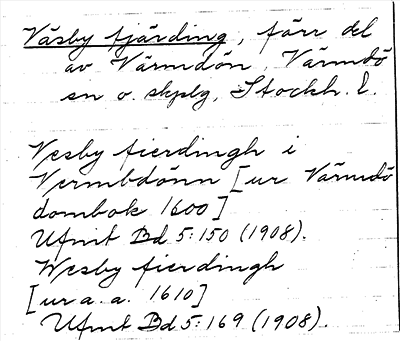 Väsby fjärding, förr del
av Värmdön, Värmdö
sn o. skplg, Stockh. l.
Vesby fierdingh i
Vermbdönn [ur Värmdö
dombok 1600]
Ufmt Bd 5:150 (1908).
Wesby fierdingh
[ur a. a. 1610]
Ufmt Bd 5:169 (1908).